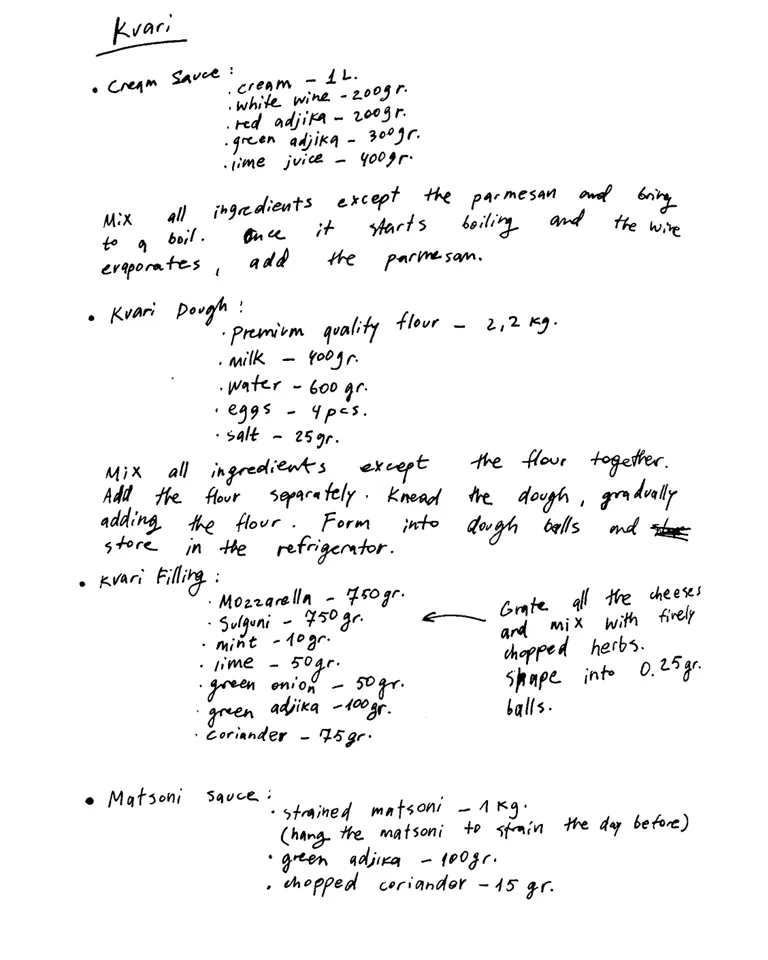 Kvari
• Cream Sauce :
· cream – 1 L.
· white wine – 200gr.
· red adjika – 200gr.
· green adjika – 300gr.
· lime juice – 400gr.
Mix all ingredients except the parmesan and bring
to a boil. Once it starts boiling and the wine
evaporates, add the parmesan.
• Kvari Dough :
· premium quality flour – 2,2 kg.
· milk – 400gr.
· water – 600 gr.
· eggs – 4 pcs.
· salt – 25gr.
Mix all ingredients except the flour together.
Add the flour separately. Knead the dough, gradually
adding the flour. Form into dough balls and
store in the refrigerator.
• Kvari Filling :
· Mozzarella – 750gr.
· Sulguni – 750gr.
· mint – 10gr.
· lime – 50gr.
· green onion – 50gr.
· green adjika – 100gr.
· coriander – 75gr.
Grate all the cheeses
and mix with finely
chopped herbs.
Shape into 0.25gr.
balls.
• Matsoni sauce :
· strained matsoni – 1 kg.
(hang the matsoni to strain the day before)
· green adjika – 100gr.
· chopped coriander – 15 gr.